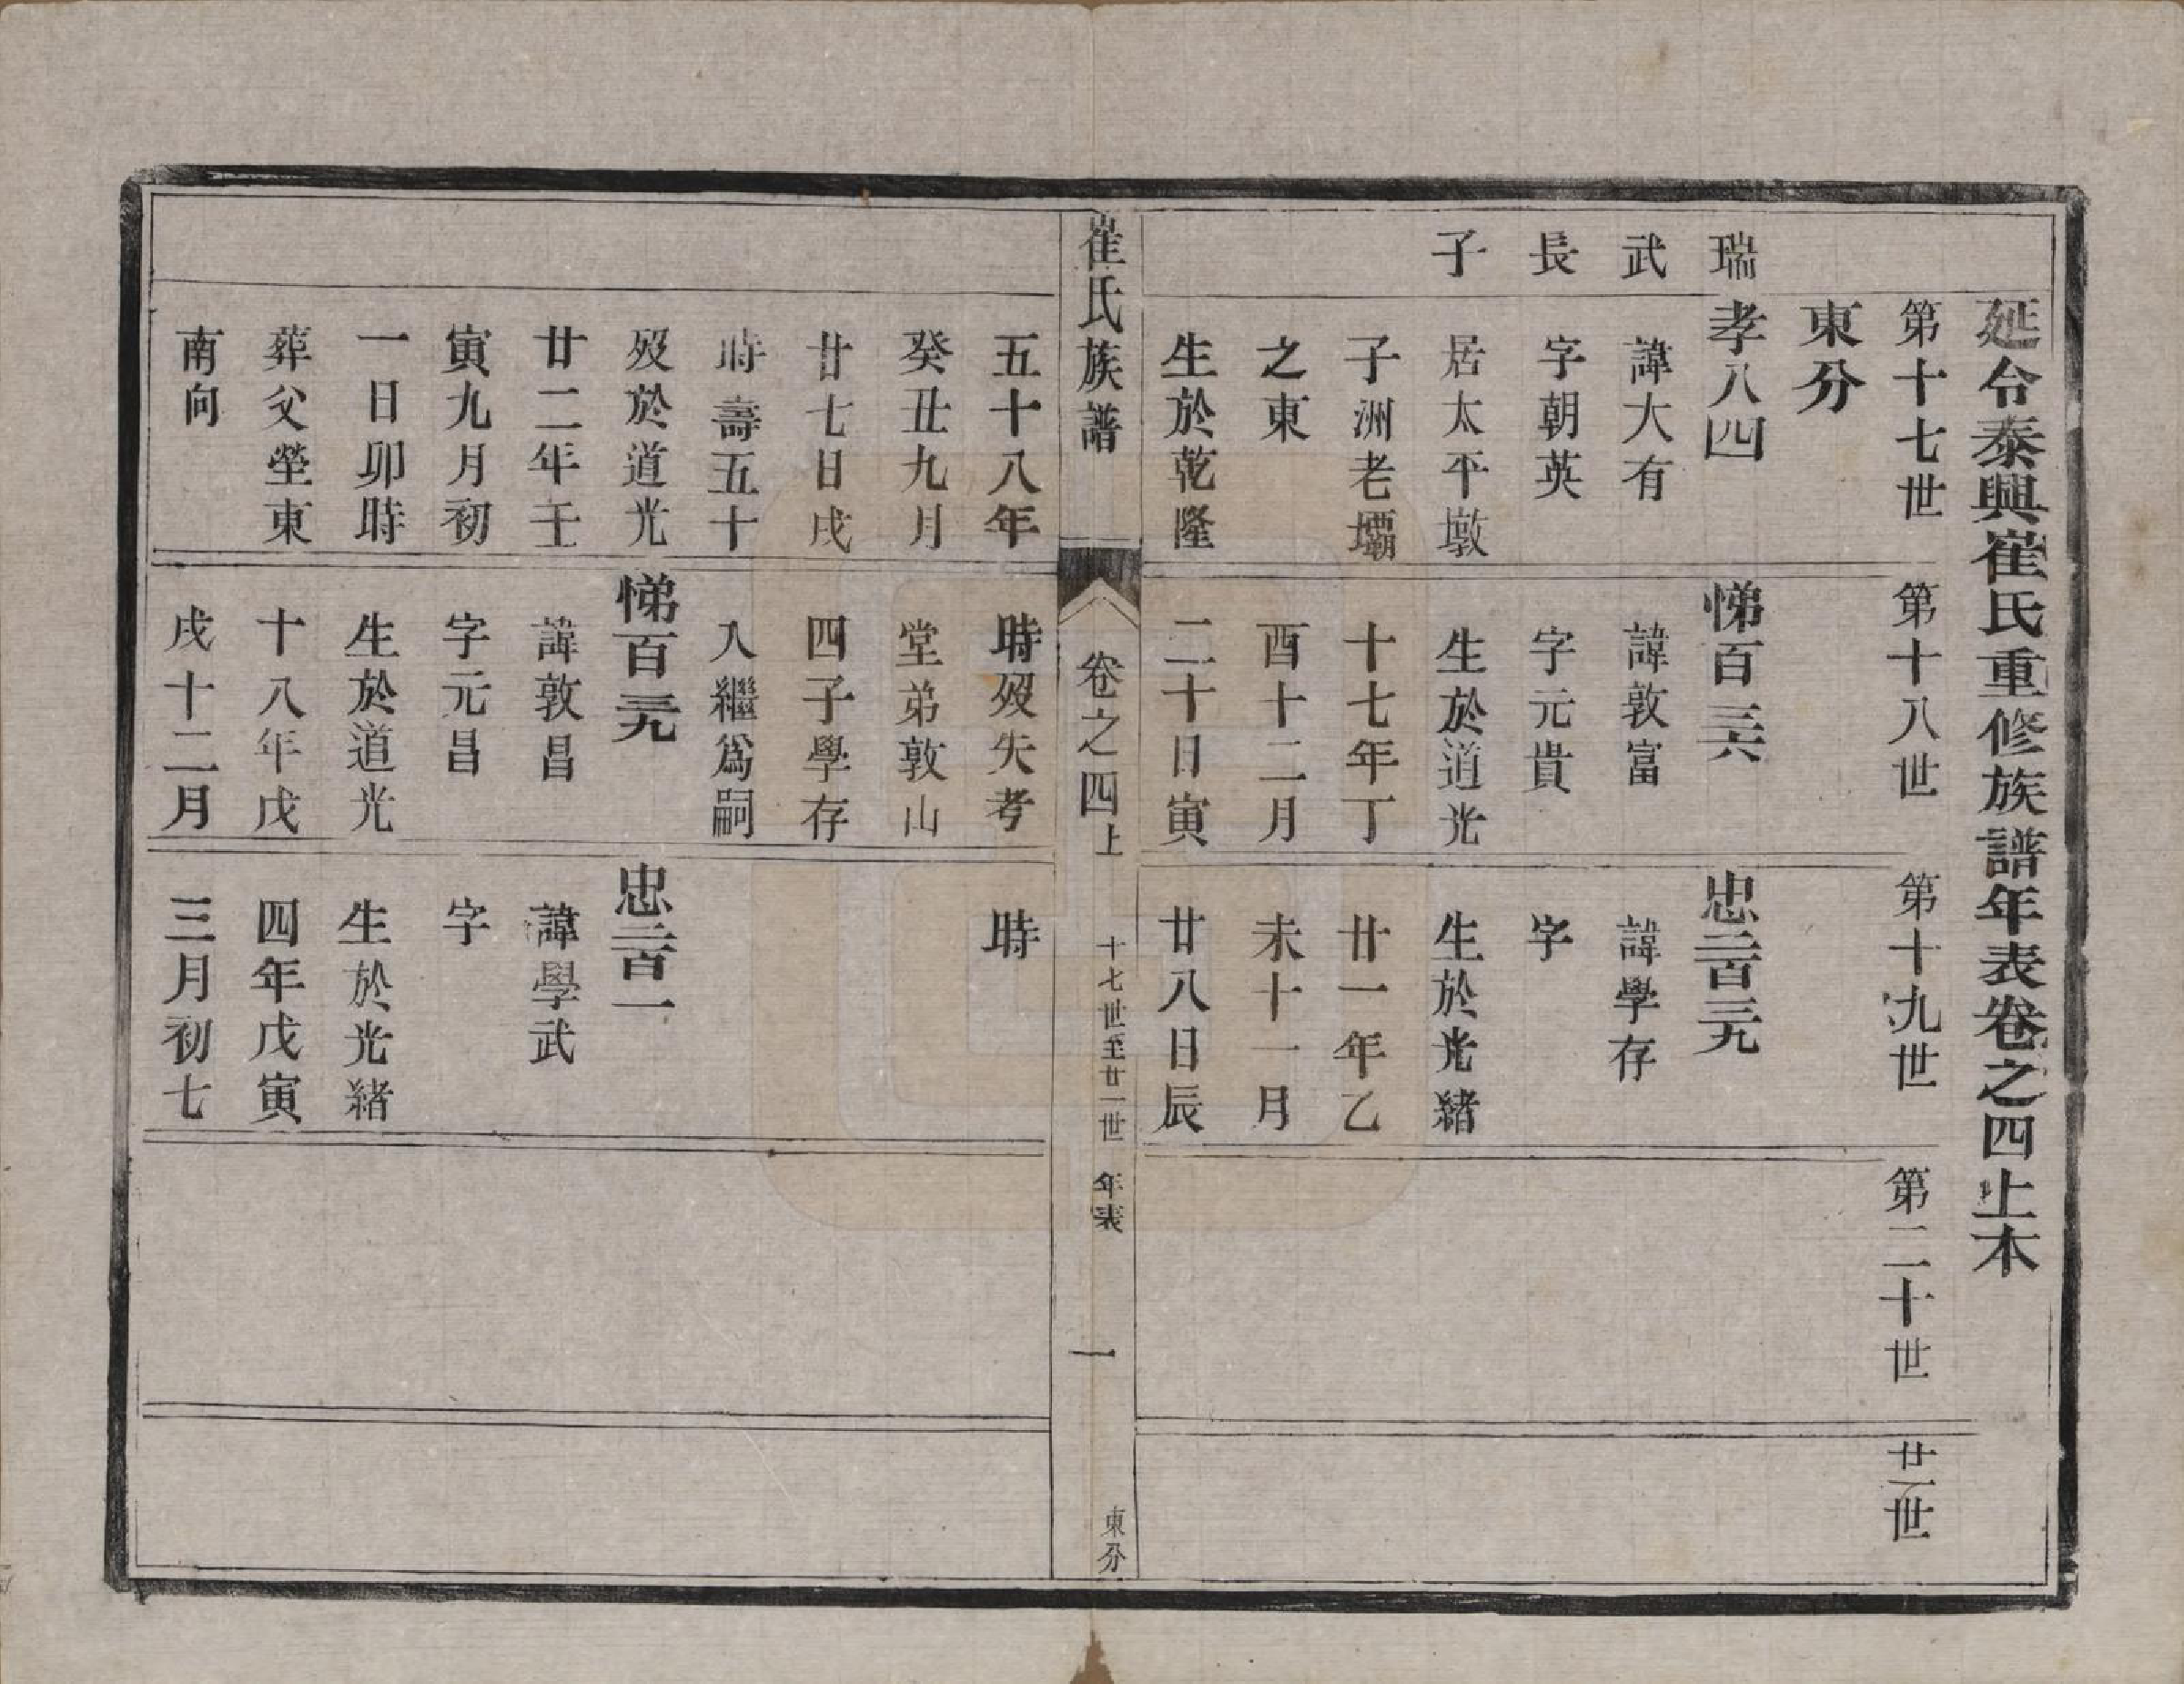 延令泰興崔氏重修族譜年表卷之四上本
第十七世
第十八世
第十九世
第二十世
廿一世
東分
瑞
武
長
子
孝八四
諱大有
字朝英
居太平墩
子洲老壩
之東
生於乾隆
五十八年
癸丑九月
廿七日戌
時壽五十
歿於道光
廿二年壬
寅九月初
一日卯時
葬父塋東
南向
悌百三六
諱敦富
字元貴
生於道光
十七年丁
酉十二月
二十日寅
時歿失考
堂弟敦山
四子學存
入繼爲嗣
悌百三九
諱敦昌
字元昌
生於道光
十八年戊
戌十二月
忠二百三九
諱學存
字
生於光緒
廿一年乙
未十一月
廿八日辰
時
忠二百一
諱學武
字
生於光緒
四年戊寅
三月初七
崔氏族譜
卷之四上
十七世至廿一世
年表
一
東分